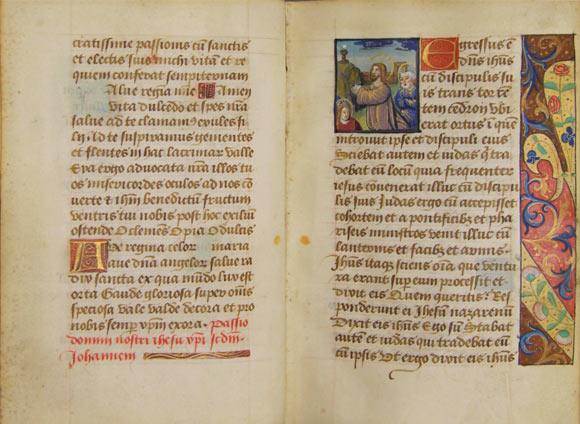 cratissime passionis cū sanctis
et electis suis michi vitā et re
quiem conferat sempiternam
Alue regina mie Amen
vita dulcedo et spes nrā
salue ad te clamam9 exules fi
lij, Ad te suspiramus gementes
et flentes in hac lacrimar valle
Eya ergo advocata nrā illos tu
os misericordes oculos ad nos cō
uerte & ihm benedictū fructum
ventris tui nobis post hoc exiliū
ostende O clemēs O pia O dulcis
Aue regina celor maria
aue dnā angelor salue ra
dix sancta ex qua mūdo lux est
orta Gaude gloriosa super oms
speciosa vale valde decora et pro
nobis semper xpm exora. Passio
domini nostri ihesu xpi scdm
Johannem
Egressus ē
dns ihūs
cū discipulis su
is trans torrē
tem cedron vbi
erat ortus ī quē
introiuit ipse et discipuli eius
Sciebat autem et iudas q tra
debat eū locū quia frequenter
iesus conuenerat illuc cū discipu
lis suis Judas ergo cū accepisset
cohortem et a pontificibz et pha
riseis ministros venit illuc cū
lanternis et facibz et armis.
Jhūs itaq sciens oīa que ventu
ra erant super eum processit et
dixit eis Quem queritis? Res
ponderunt ei Jhesū nazarenū
Dixit eis ihūs Ego sū Stabat
autē et iudas qui tradebat eū
cū ipsis Vt ergo dixit eis ihūs